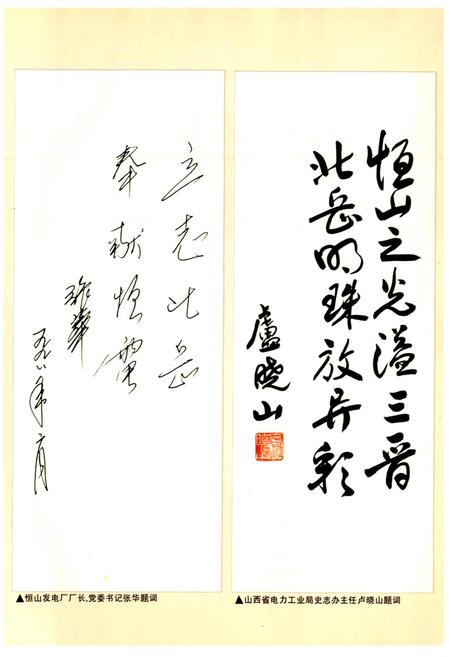 恒山之光溢三晋
北岳明珠放异彩
盧晓山
▲山西省电力工业局史志办主任卢晓山题词
立志北岳
奉献恒電
張華
▲恒山发电厂厂长、党委书记张华题词